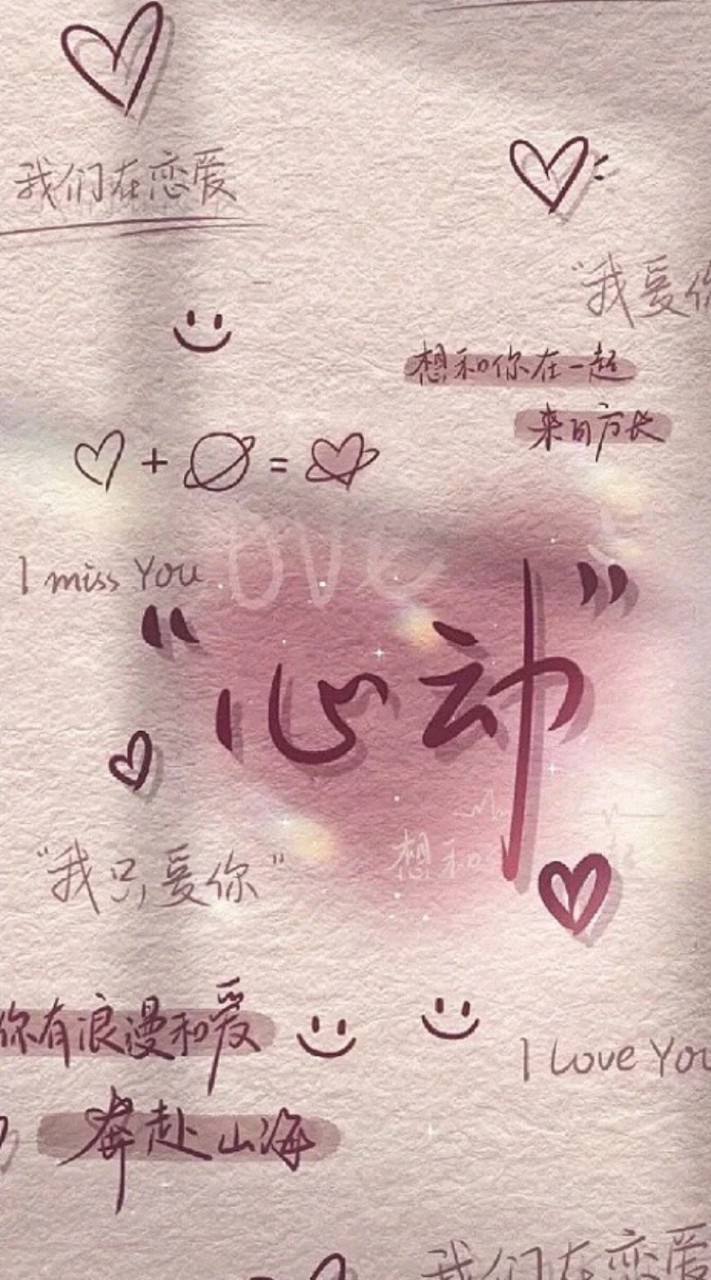 我们在恋爱
"我爱你
想和你在一起
来日方长
I miss You
ove
"心动"
想和
"我只爱你"
你有浪漫和爱
I Love You
奔赴山海
我们在恋爱